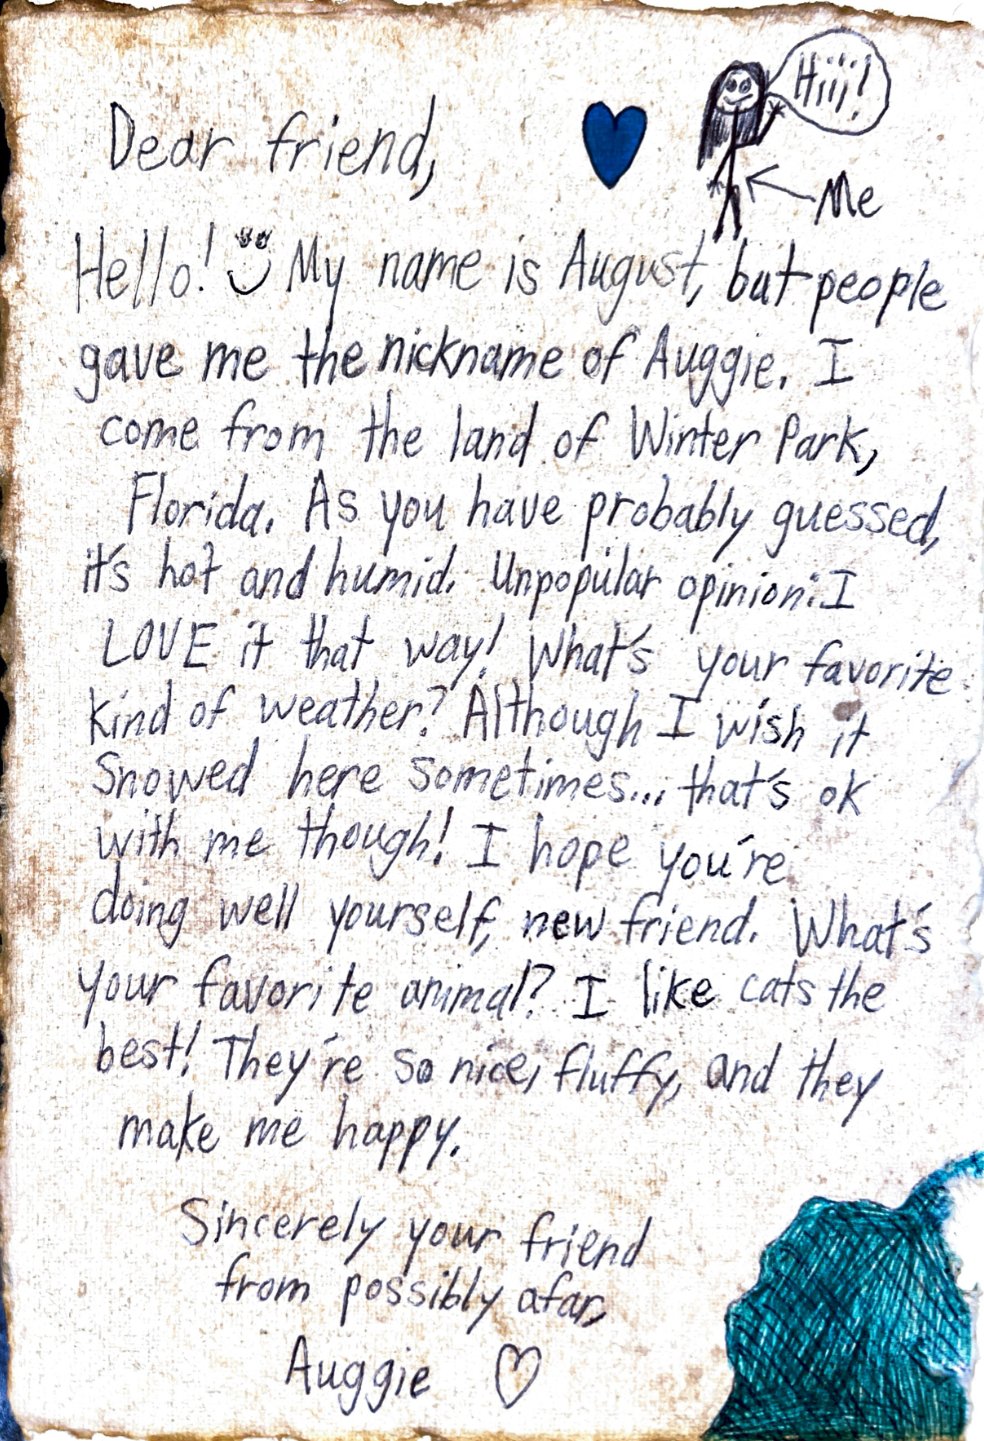 Hiii!
Dear friend,
Me
Hello! My name is August, but people
gave me the nickname of Auggie. I
come from the land of Winter Park,
Florida. As you have probably guessed,
it's hot and humid. Unpopular opinion: I
LOVE it that way! What's your favorite
kind of weather? Although I wish it
snowed here sometimes... that's ok
with me though! I hope you're
doing well yourself, new friend. What's
your favorite animal? I like cats the
best! They're so nice, fluffy, and they
make me happy.
Sincerely your friend
from possibly afar,
Auggie